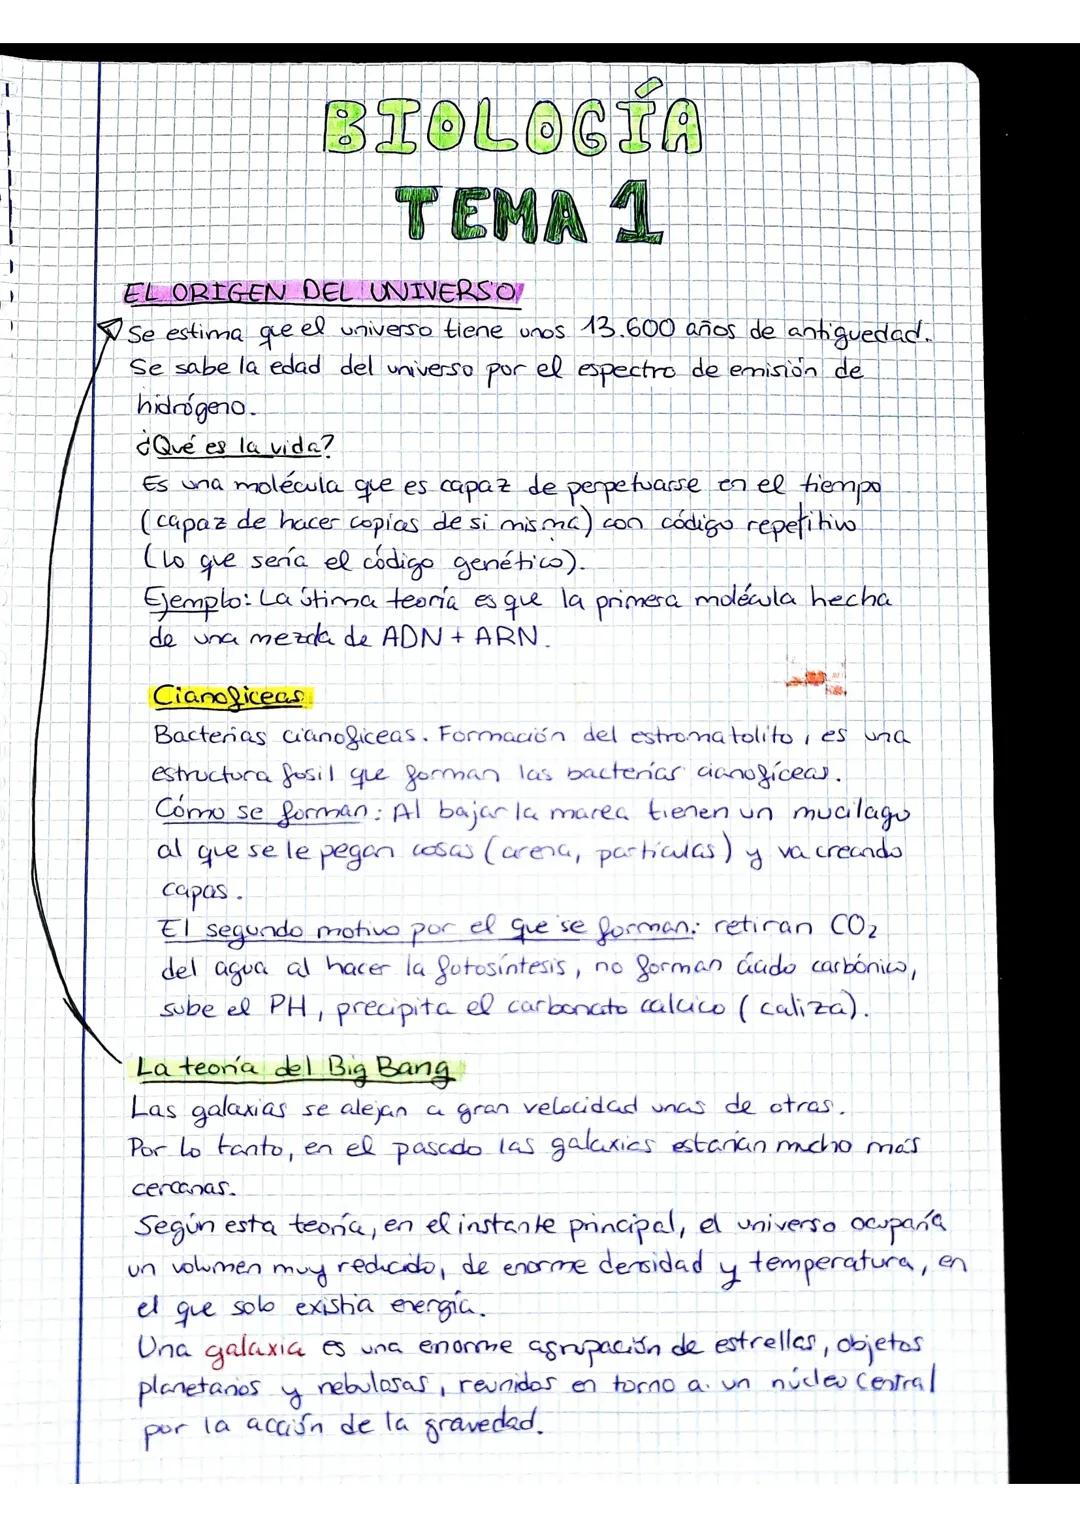 BIOLOGÍA
TEMA 1
EL ORIGEN DEL UNIVERSO
Se estima que el universo tiene unos 13.600 años de antiguedad.
Se sabe la edad del universo por el espectro de emisión de
hidrógeno.
¿Qué es la vida?
Es una molécula que es capaz de perpetuarse en el tiempo
(capaz de hacer copias de si misma) con código repetitivo
(lo que sería el código genético).
Ejemplo: La útima teoría es que la primera molécula hecha
de una mezcla de ADN + ARN.
Cianofíceas
Bacterias cianofíceas. Formación del estromatolito, es una
estructura fosil que forman las bacterías cianofíceas.
Cómo se forman: Al bajar la marea tienen un mucilago
al que se le pegan cosas (arena, partículas) y va creando
capas.
El segundo motivo por el que se forman: retiran CO2
del agua al hacer la fotosíntesis, no forman ácido carbónico,
sube el PH, precipita el carbonato calcico (caliza).
La teoría del Big Bang
Las galaxias se alejan a gran velocidad unas de otras.
Por lo tanto, en el pasado las galaxias estarían mucho más
cercanas.
Según esta teoría, en el instante principal, el universo ocuparía
un volumen muy reducido, de enorme densidad y temperatura, en
el que solo existia energía.
Una galaxia es una enorme agrupación de estrellas, objetos
planetarios y nebulosas, reunidos en torno a un núcleo central
por la acción de la gravedad.